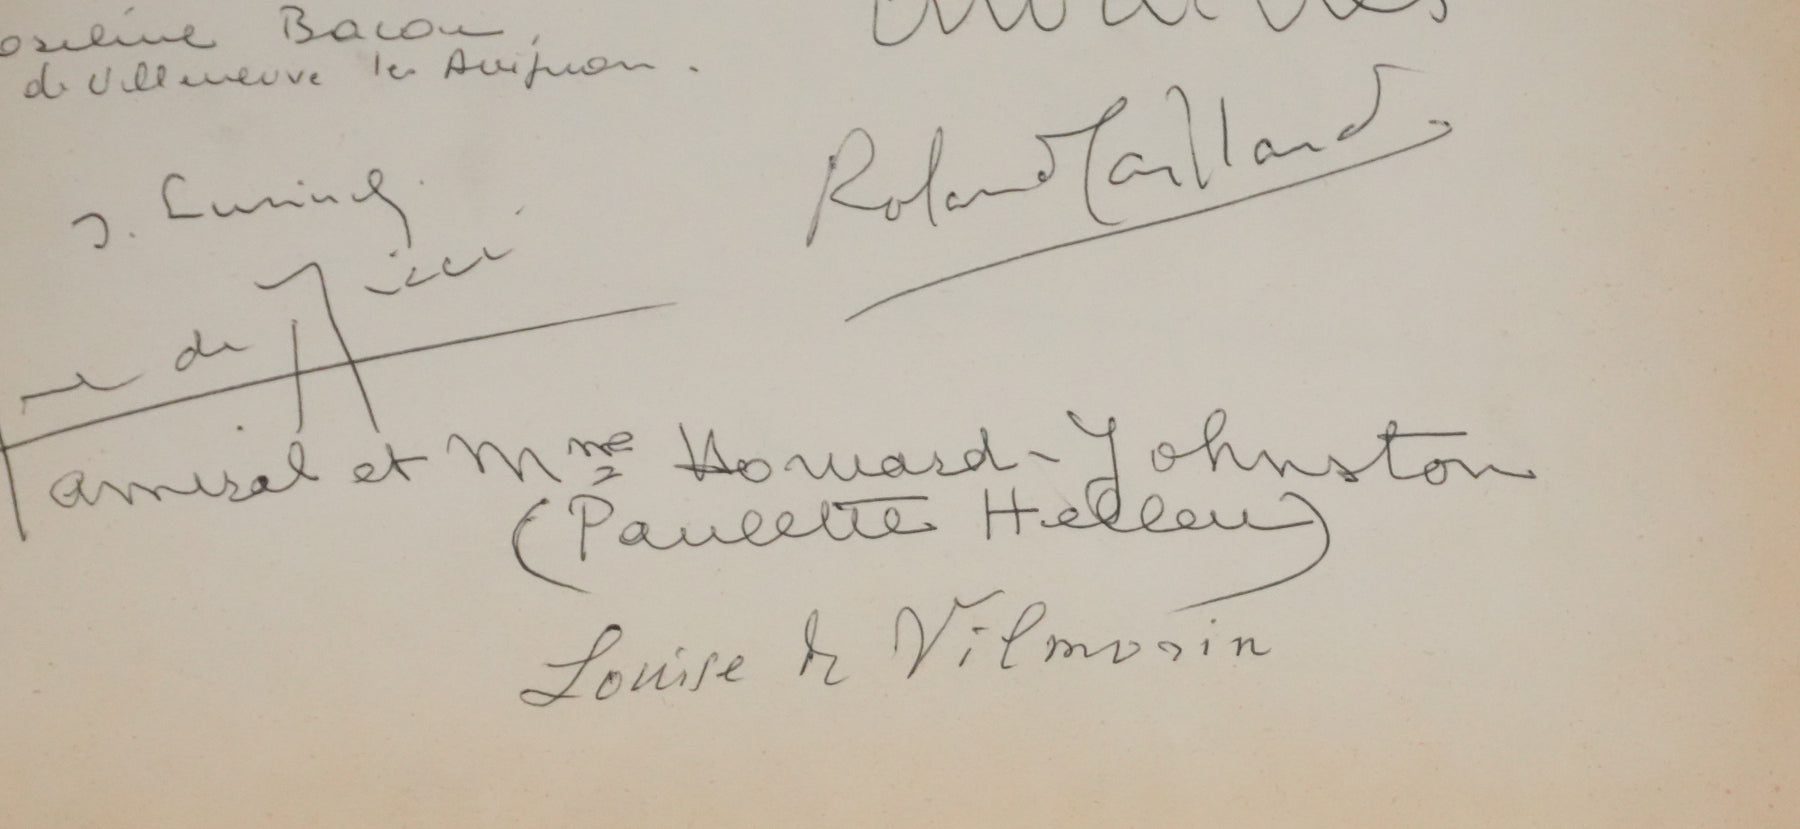 oseline Bacou,
de Villeneuve les Avignon.
Roland
J.
de
amiral et Mme Howard-Johnston
(Paulette Helleu)
Louise de Vilmorin